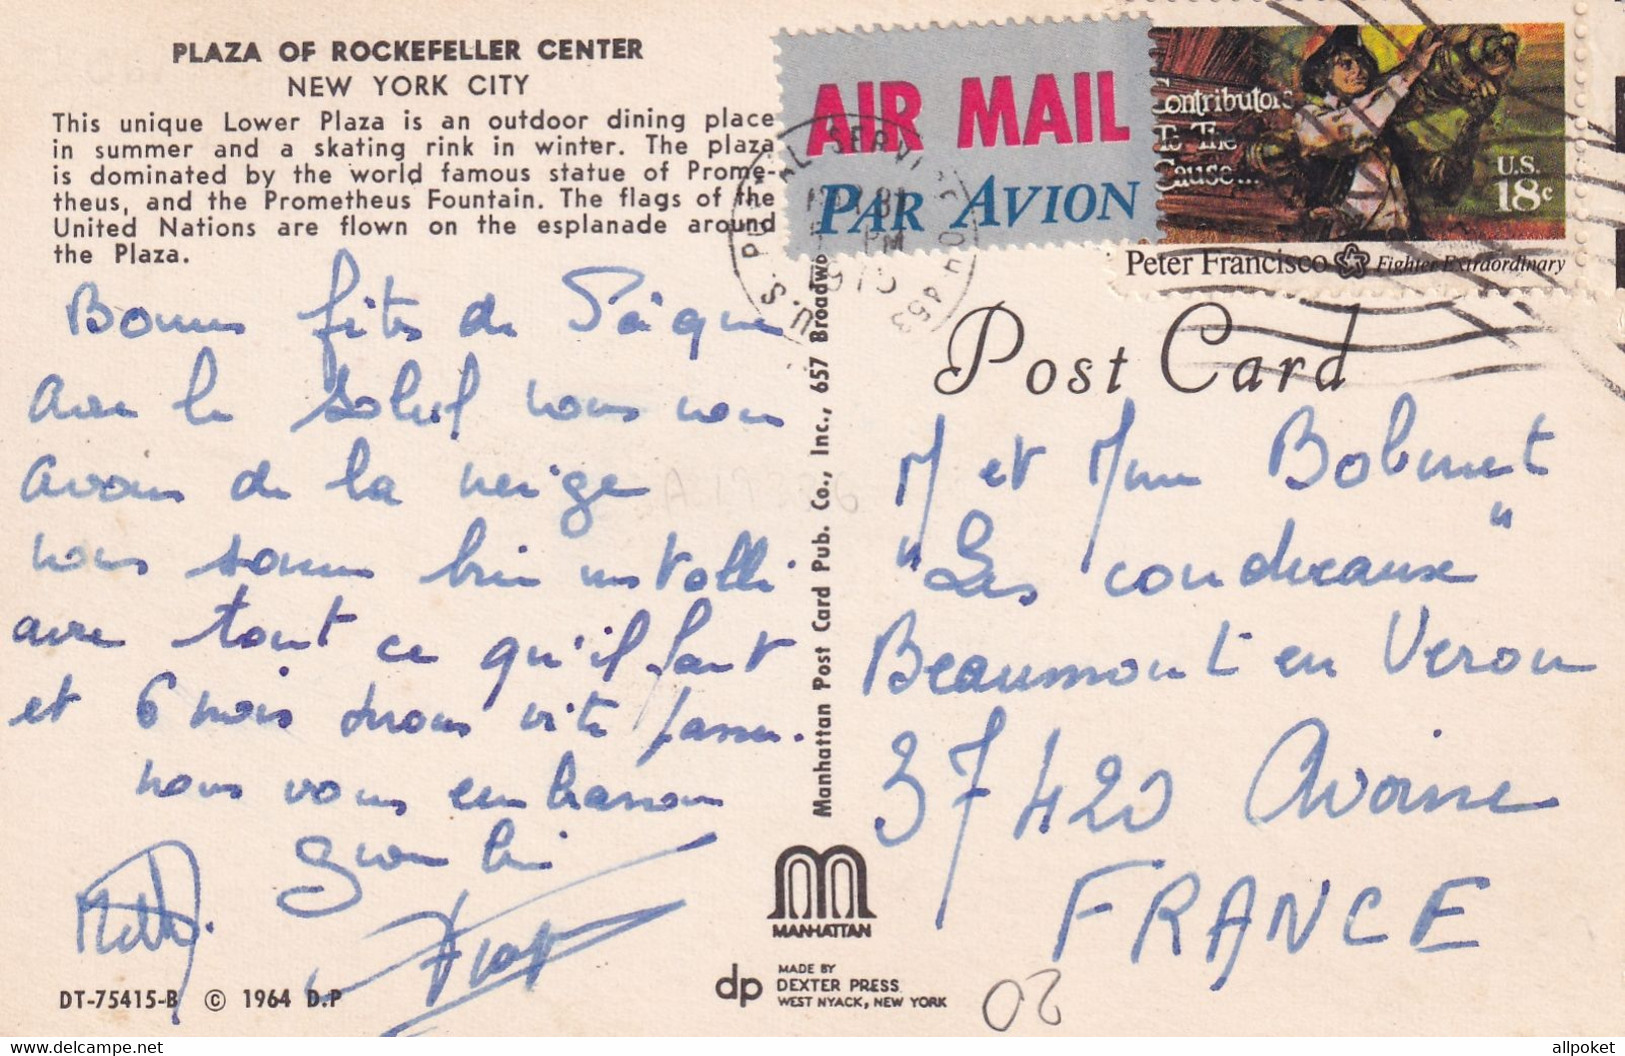 PLAZA OF ROCKEFELLER CENTER
NEW YORK CITY
This unique Lower Plaza is an outdoor dining place
in summer and a skating rink in winter. The plaza
is dominated by the world famous statue of Prome-
theus, and the Prometheus Fountain. The flags of the
United Nations are flown on the esplanade around
the Plaza.
Bonnes fêtes de Pâques
avec le soleil nous nous
avons de la neige
nous sommes bien installé
avec tout ce qu'il faut
et 6 mois vite passer.
nous vous embrassons
DT-75415-B © 1964 D.P
Manhattan Post Card Pub. Co., Inc., 657 Broadwa
MANHATTAN
dp MADE BY
DEXTER PRESS
WEST NYACK, NEW YORK
AIR MAIL
PAR AVION
Contributors
To The
Cause...
U.S.
18c
Peter Francisco Fighter Extraordinary
U.S. POSTAL SERVICE
PM
1975
Post Card
M et Mme Bobinet
"Les coudreaux"
Beaumont en Veron
37420 Avoine
FRANCE
02
allpoket